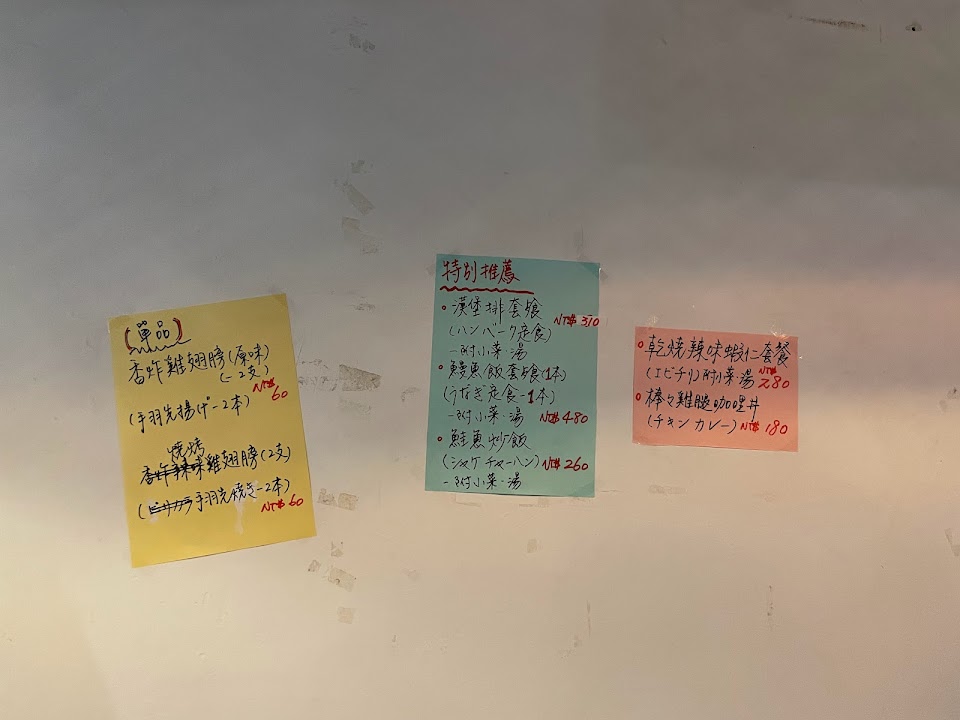 (單品)
香炸雞翅膀(原味)
(-2支)
NT$
60
(手羽先揚げ-2本)
燒烤
香炸辣味雞翅膀(2支)
(ピリカラ手羽先焼き-2本)
NT$ 60
特別推薦
•漢堡排套餐
NT$ 310
(ハンバーク定食)
-附小菜·湯
•鰻魚飯套餐(1本)
(うなぎ定食-1本)
-附小菜·湯 NT$ 480
•鮭魚炒飯
(シャケチャーハン) NT$ 260
-附小菜·湯
•乾燒辣味蝦仁套餐
(エビチリ)附小菜·湯 NT$ 280
•棒々雞腿咖哩丼
(チキンカレー) NT$ 180